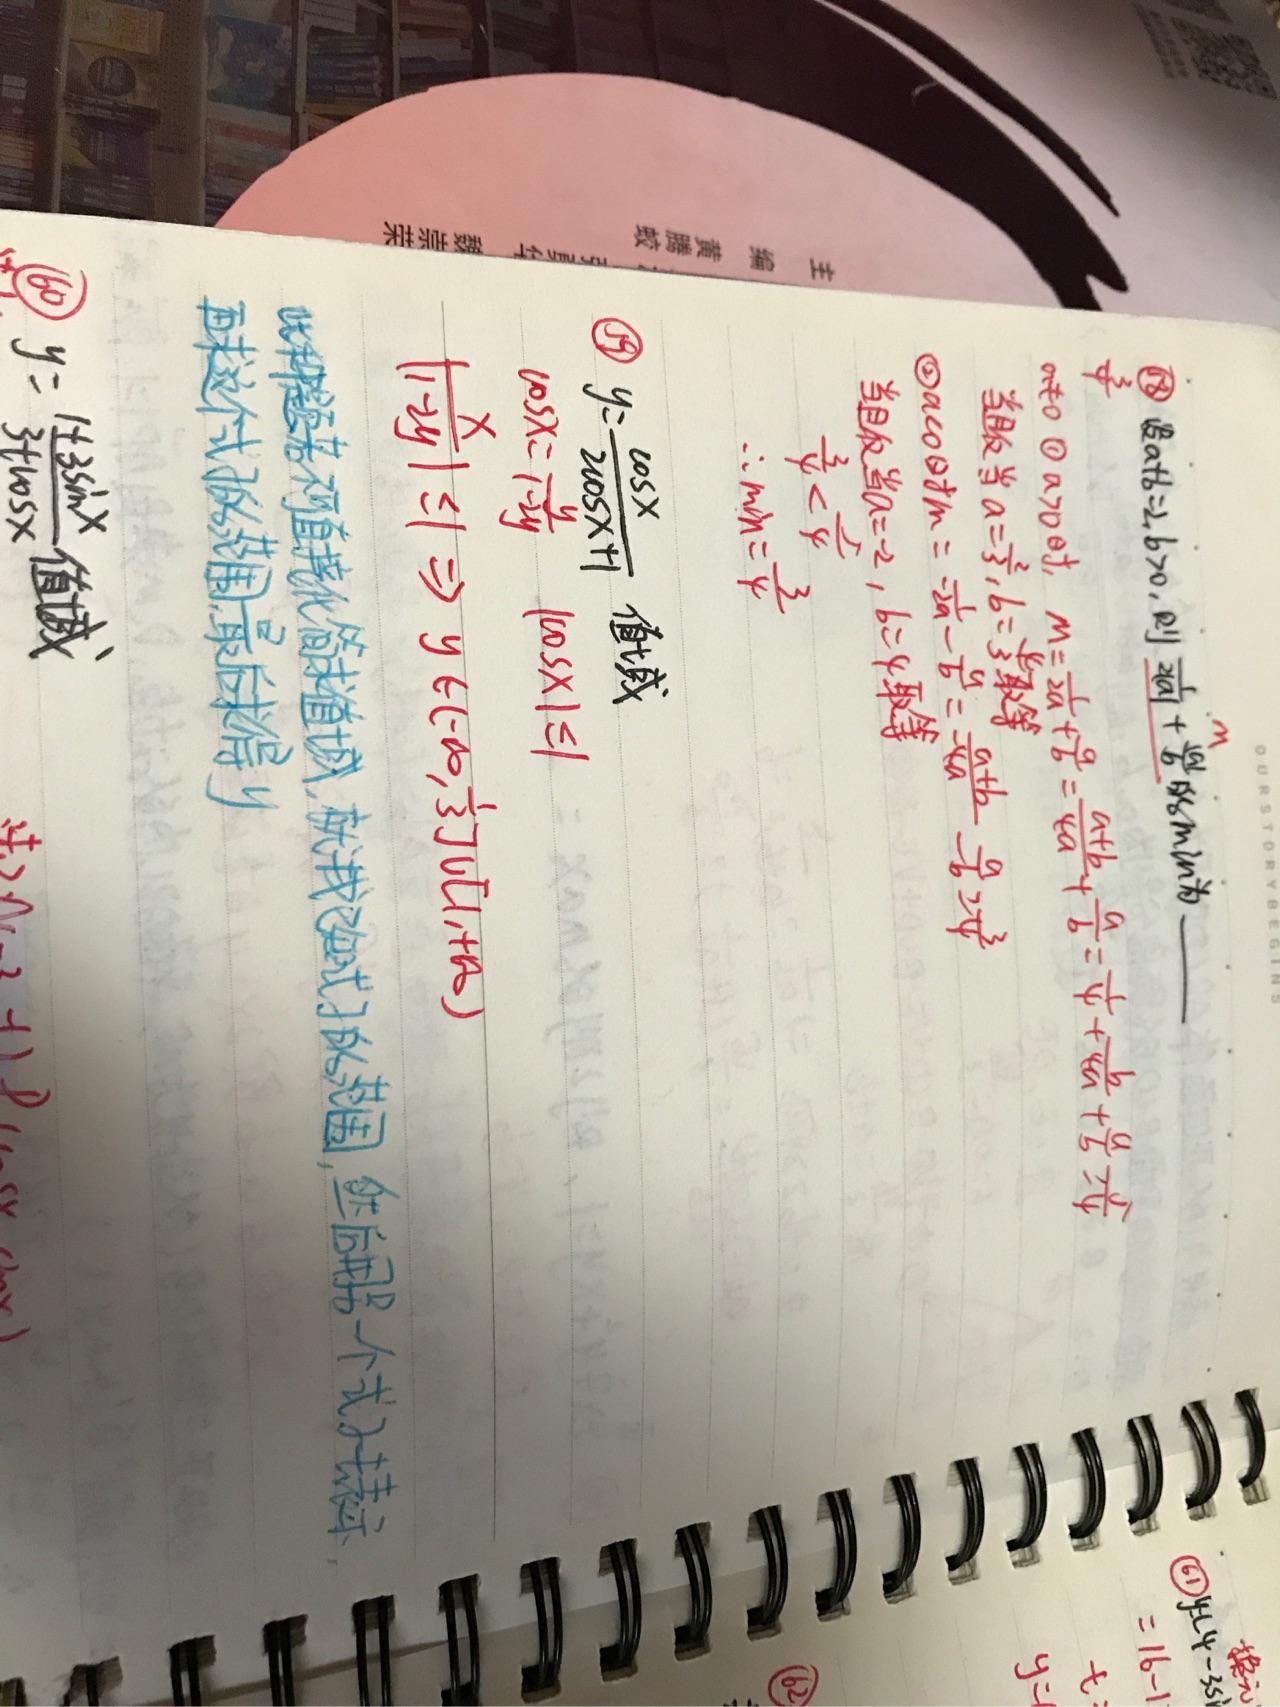 OURSTORYBEGINS
主
编
黄腾蛟
魏崇荣
58 设a+b=2, b>0, 则 1/2|a| + |a|/b 的min为______
m
3/4
a≠0 ①a>0时, m=1/2a+a/b=a+b/4a+a/b=1/4+b/4a+a/b≥5/4
当且仅当a=2/3, b=4/3取等
②a<0时m=-1/2a-a/b=-a+b/4a-a/b≥3/4
当且仅当a=-2, b=4取等
3/4<5/4
∴min=3/4
59 y=cosx/2cosx+1 值域
cosx=y/1-2y |cosx|≤1
|y/1-2y|≤1 ⇒ y∈(-∞,1/3]∪[1,+∞)
此种题若不直接化简求值域,就找已知式子的范围,然后再用另一个式子表示,
再求这个式子的范围,最后求得y
60 y=1+3sinx/3+cosx 值域
61 y=(4-3si
=16-1
t=
y=
62